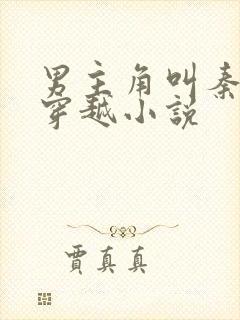 男主角叫秦
穿越小说
賈真真